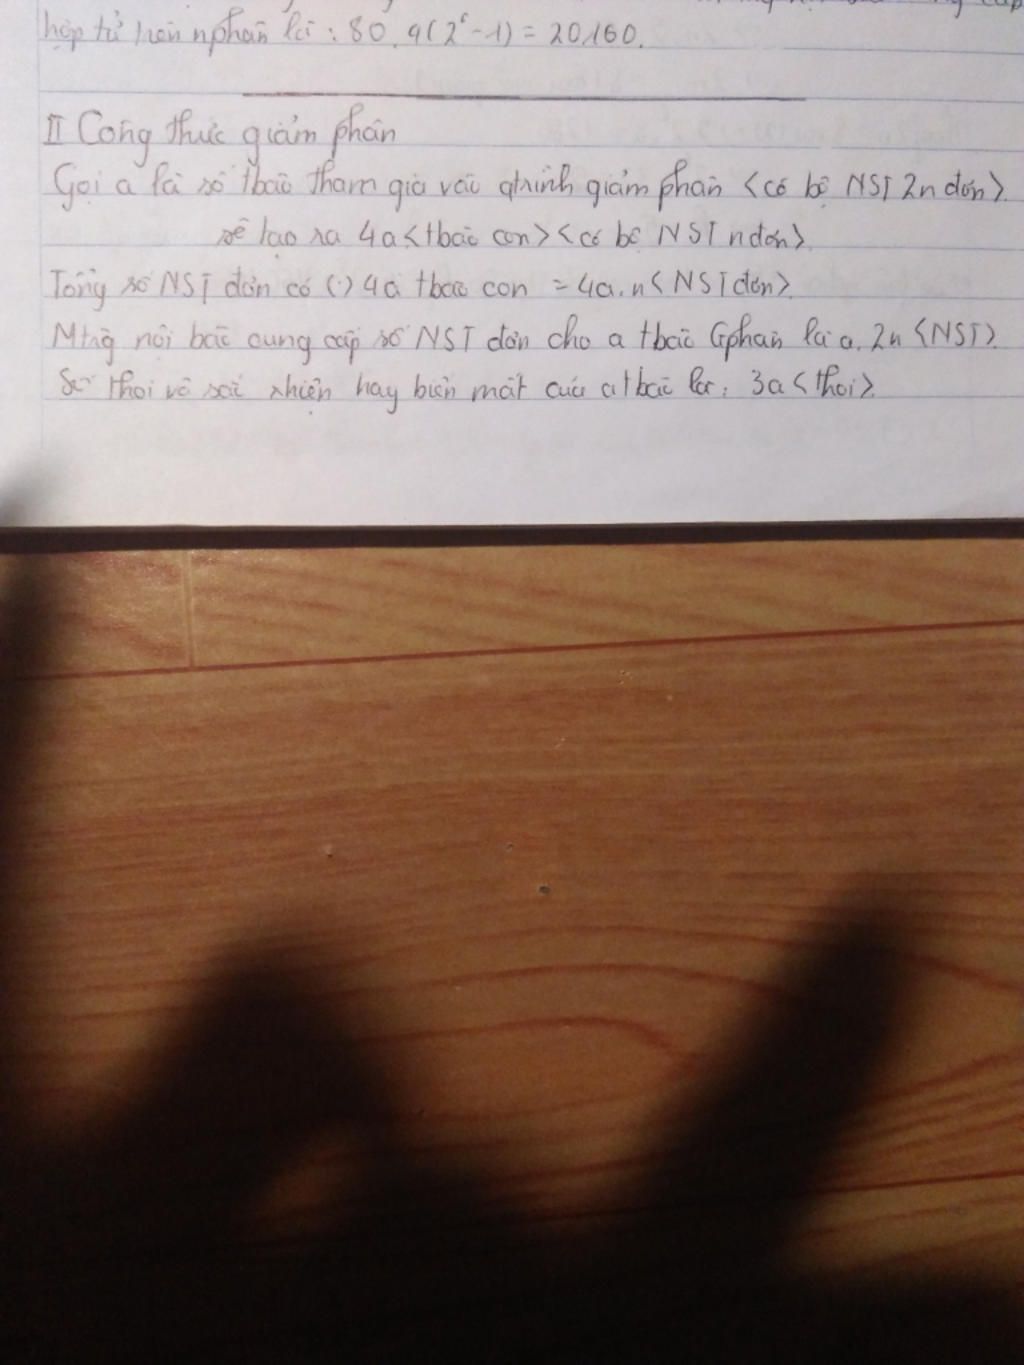 hợp tử trên nphân là : 80.4(2⁶-1) = 20160.
II Công thức giảm phân
Gọi a là số tbào tham gia vào qtrình giảm phân <có bộ NST 2n đơn>.
sẽ tạo ra 4a <tbào con> <có bộ NST n đơn>.
Tổng số NST đơn có (.) 4a tbào con = 4a.n <NST đơn>.
Mtrg nội bào cung cấp số NST đơn cho a tbào Gphân là a.2n <NST>.
Số thoi vô sắc xhiện hay biến mất của a tbào là : 3a <thoi>.